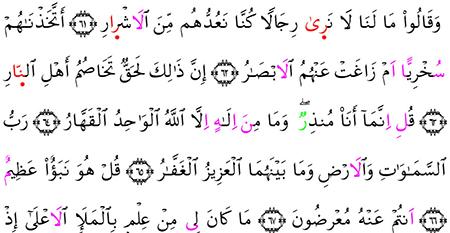 وَقَالُواْ مَا لَنَا لَا نَرىٰ رِجَالًا كُنَّا نَعُدُّهُم مِّنَ ٱلَاشْرارِ ٦١ أَتَّخَذْنَٰهُمْ
سُخْرِيًّا اَمْ زَاغَتْ عَنْهُمُ ٱلَابْصَٰرُ ٦٢ إِنَّ ذَٰلِكَ لَحَقٌّ تَخَاصُمُ أَهْلِ ٱلنّارِ
٦٣ قُلِ اِنَّمَآ أَنَا۠ مُنذِرٌۖ وَمَا مِنِ اِلَٰهٍ اِلَّا ٱللَّهُ ٱلْوَٰحِدُ ٱلْقَهَّارُ ٦٤ رَبُّ
ٱلسَّمَٰوَٰتِ وَٱلَارْضِ وَمَا بَيْنَهُمَا ٱلْعَزِيزُ ٱلْغَفَّٰرُ ٦٥ قُلْ هُوَ نَبَؤٌاْ عَظِيمٌ
٦٦ اَنتُمْ عَنْهُ مُعْرِضُونَ ٦٧ مَا كَانَ لِي مِنْ عِلْمٍ بِٱلْمَلَإِ ٱلَاعْلَىٰٓ إِذْ